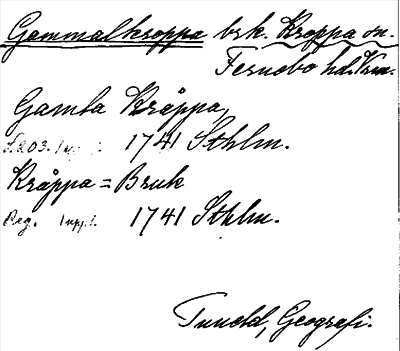 Gammalkroppa brk. Kroppa sn.
Fernebo hd. Vrm.
Gamla Kråppa,
S. 203. 1 uppl. 1741 Sthlm.
Kråppa = Bruk
Reg. 1 uppl. 1741 Sthlm.
Tuneld, Geografi.